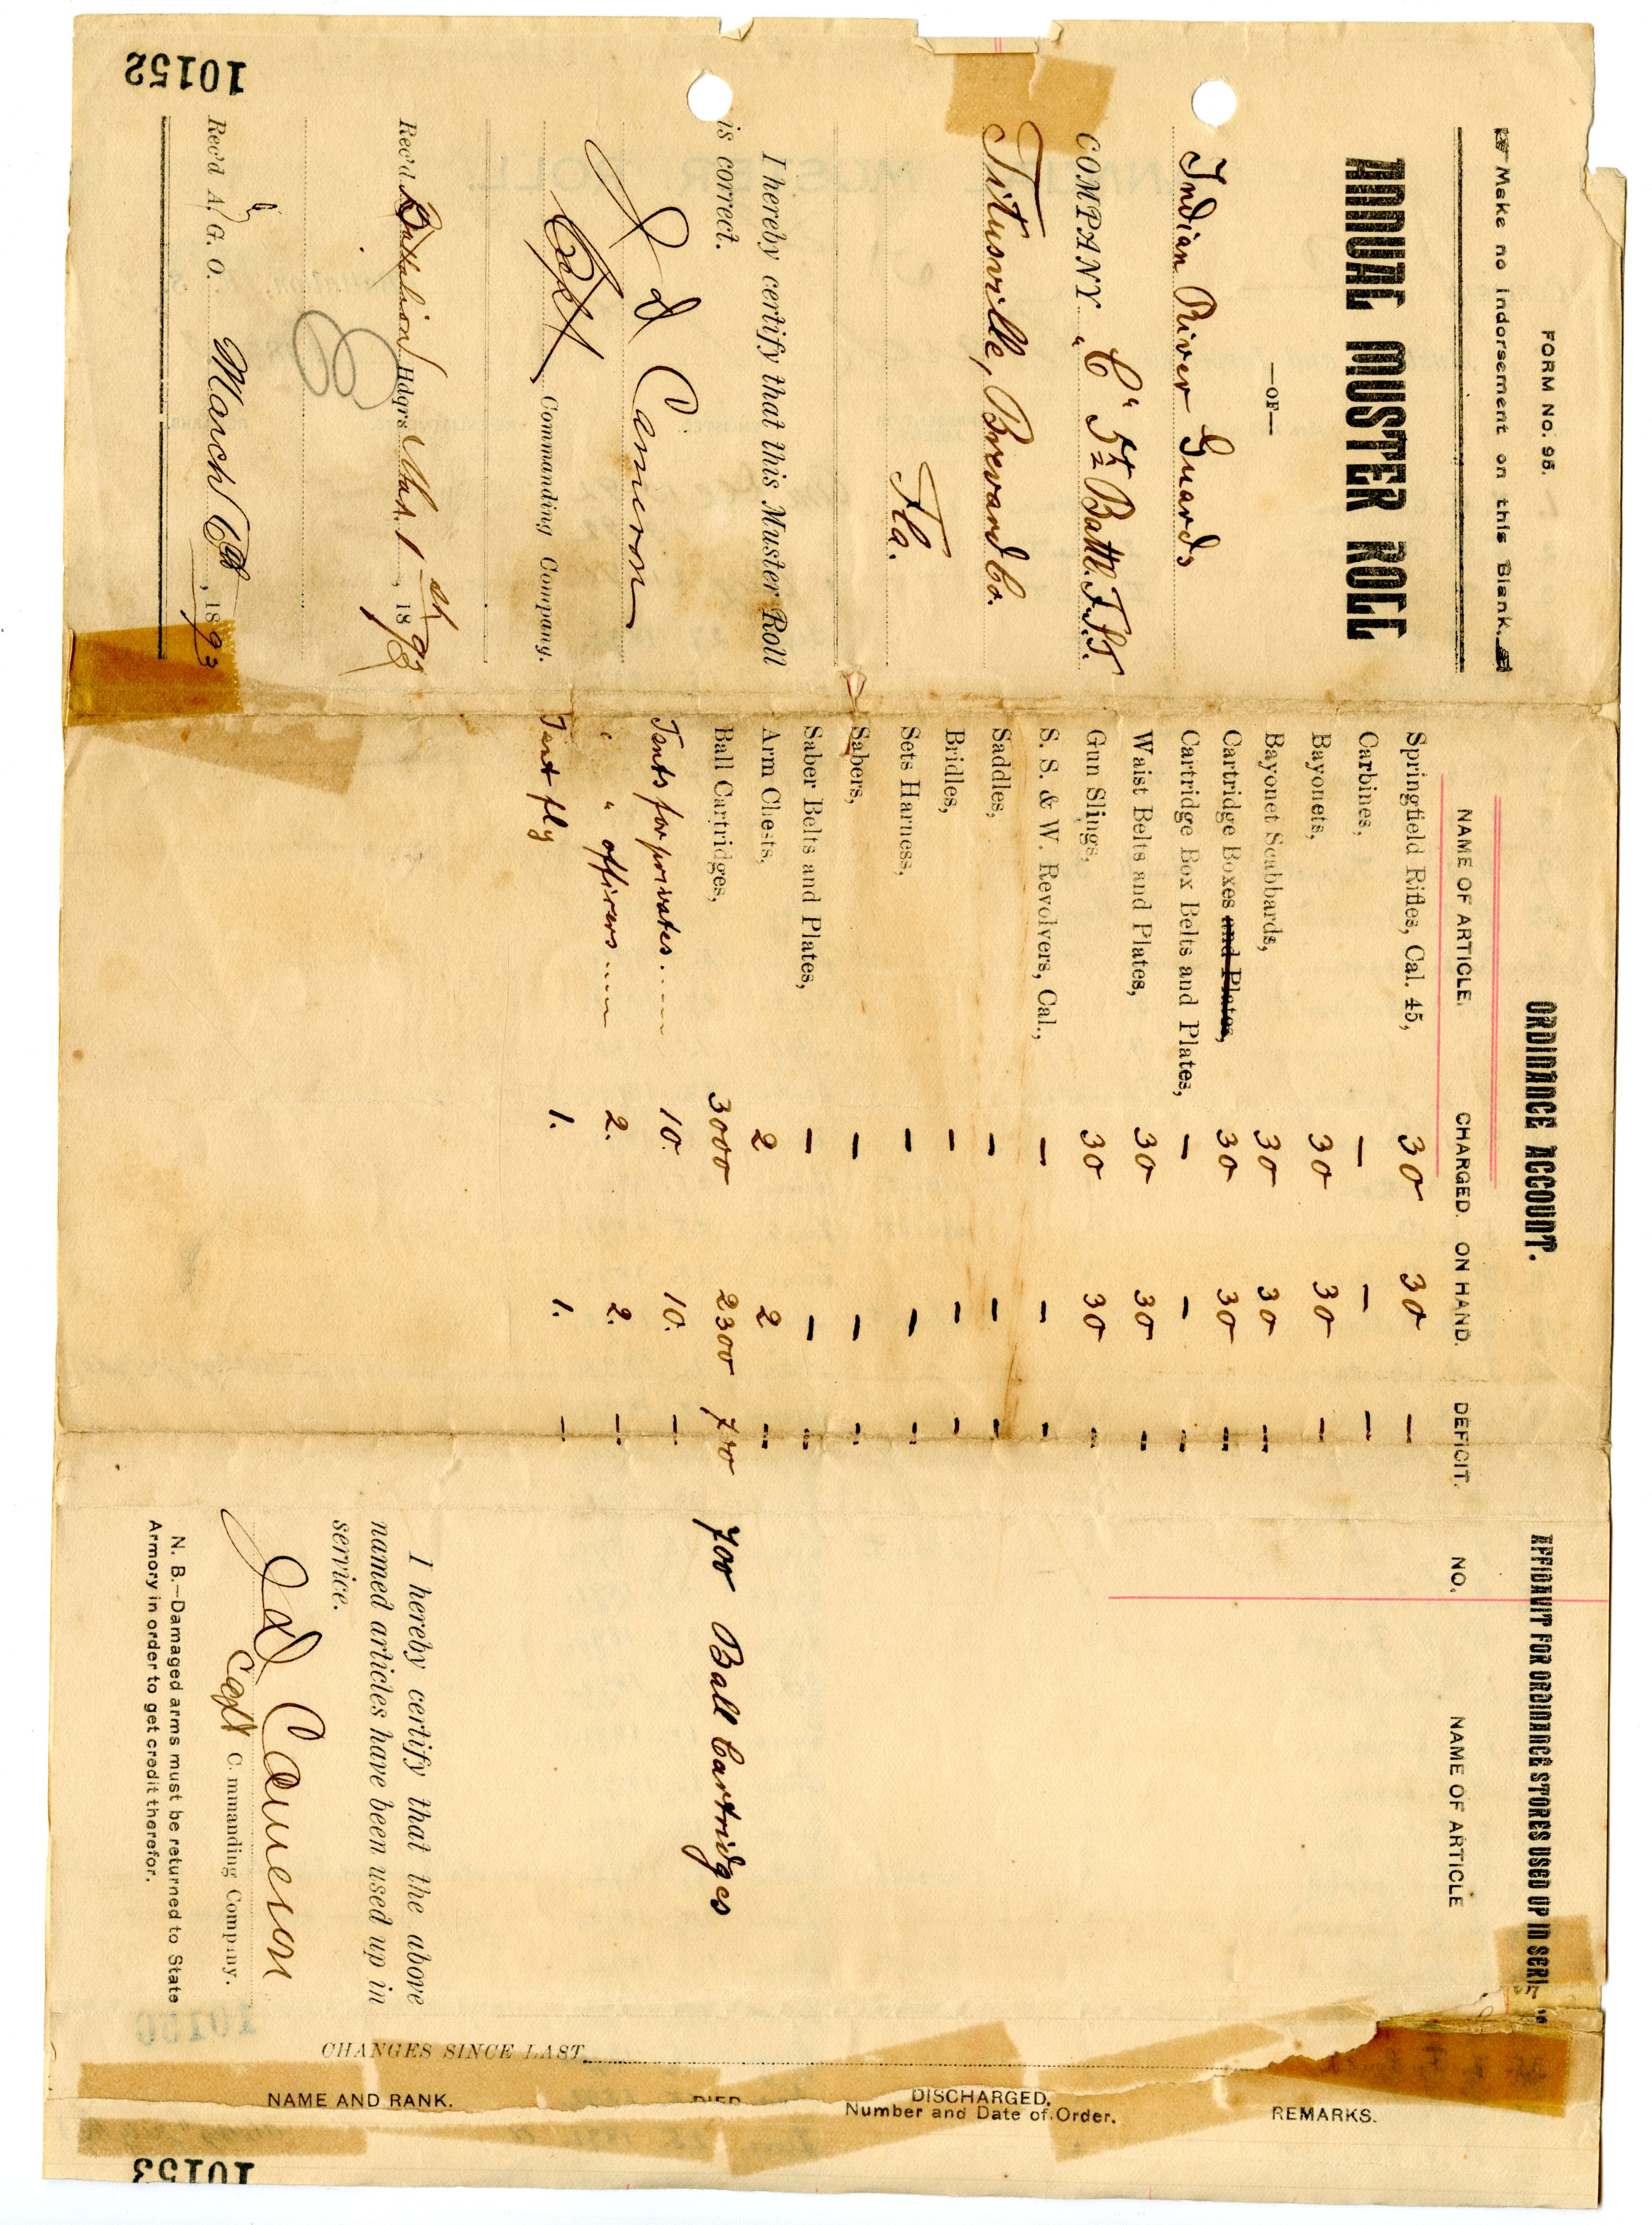 10152
FORM No. 95.
Make no Indorsement on this Blank.
ANNUAL MUSTER ROLL
—OF—
Indian River Guards
COMPANY "C" 5th Battl. F.S.T.
Titusville, Brevard Co.
Fla.
I hereby certify that this Muster Roll
is correct.
J d Cameron
Capt Commanding Company.
Rec'd Battalion Hdqrs Mar. 1st, 1893
Rec'd A. G. O. March 6th, 1893
ORDINANCE ACCOUNT.
NAME OF ARTICLE. CHARGED. ON HAND. DEFICIT.
Springfield Rifles, Cal. 45, 30 30 —
Carbines, — — —
Bayonets, 30 30 —
Bayonet Scabbards, 30 30 —
Cartridge Boxes and Plates, 30 30 —
Cartridge Box Belts and Plates, — — —
Waist Belts and Plates, 30 30 —
Gun Slings, 30 30 —
S. S. & W. Revolvers, Cal., — — —
Saddles, — — —
Bridles, — — —
Sets Harness, — — —
Sabers, — — —
Saber Belts and Plates, — — —
Arm Chests, 2 2 —
Ball Cartridges, 3000 2300 700
Tents for privates..... 10. 10. —
" " officers..... 2. 2. —
Tent fly 1. 1. —
AFFIDAVIT FOR ORDINANCE STORES USED UP IN SERV
NO. NAME OF ARTICLE
700 Ball Cartridges
I hereby certify that the above
named articles have been used up in
service.
J d Cameron
Capt C. mmanding Company.
N. B.—Damaged arms must be returned to State
Armory in order to get credit therefor.
CHANGES SINCE LAST
NAME AND RANK. DIED DISCHARGED. REMARKS.
Number and Date of Order.
10153